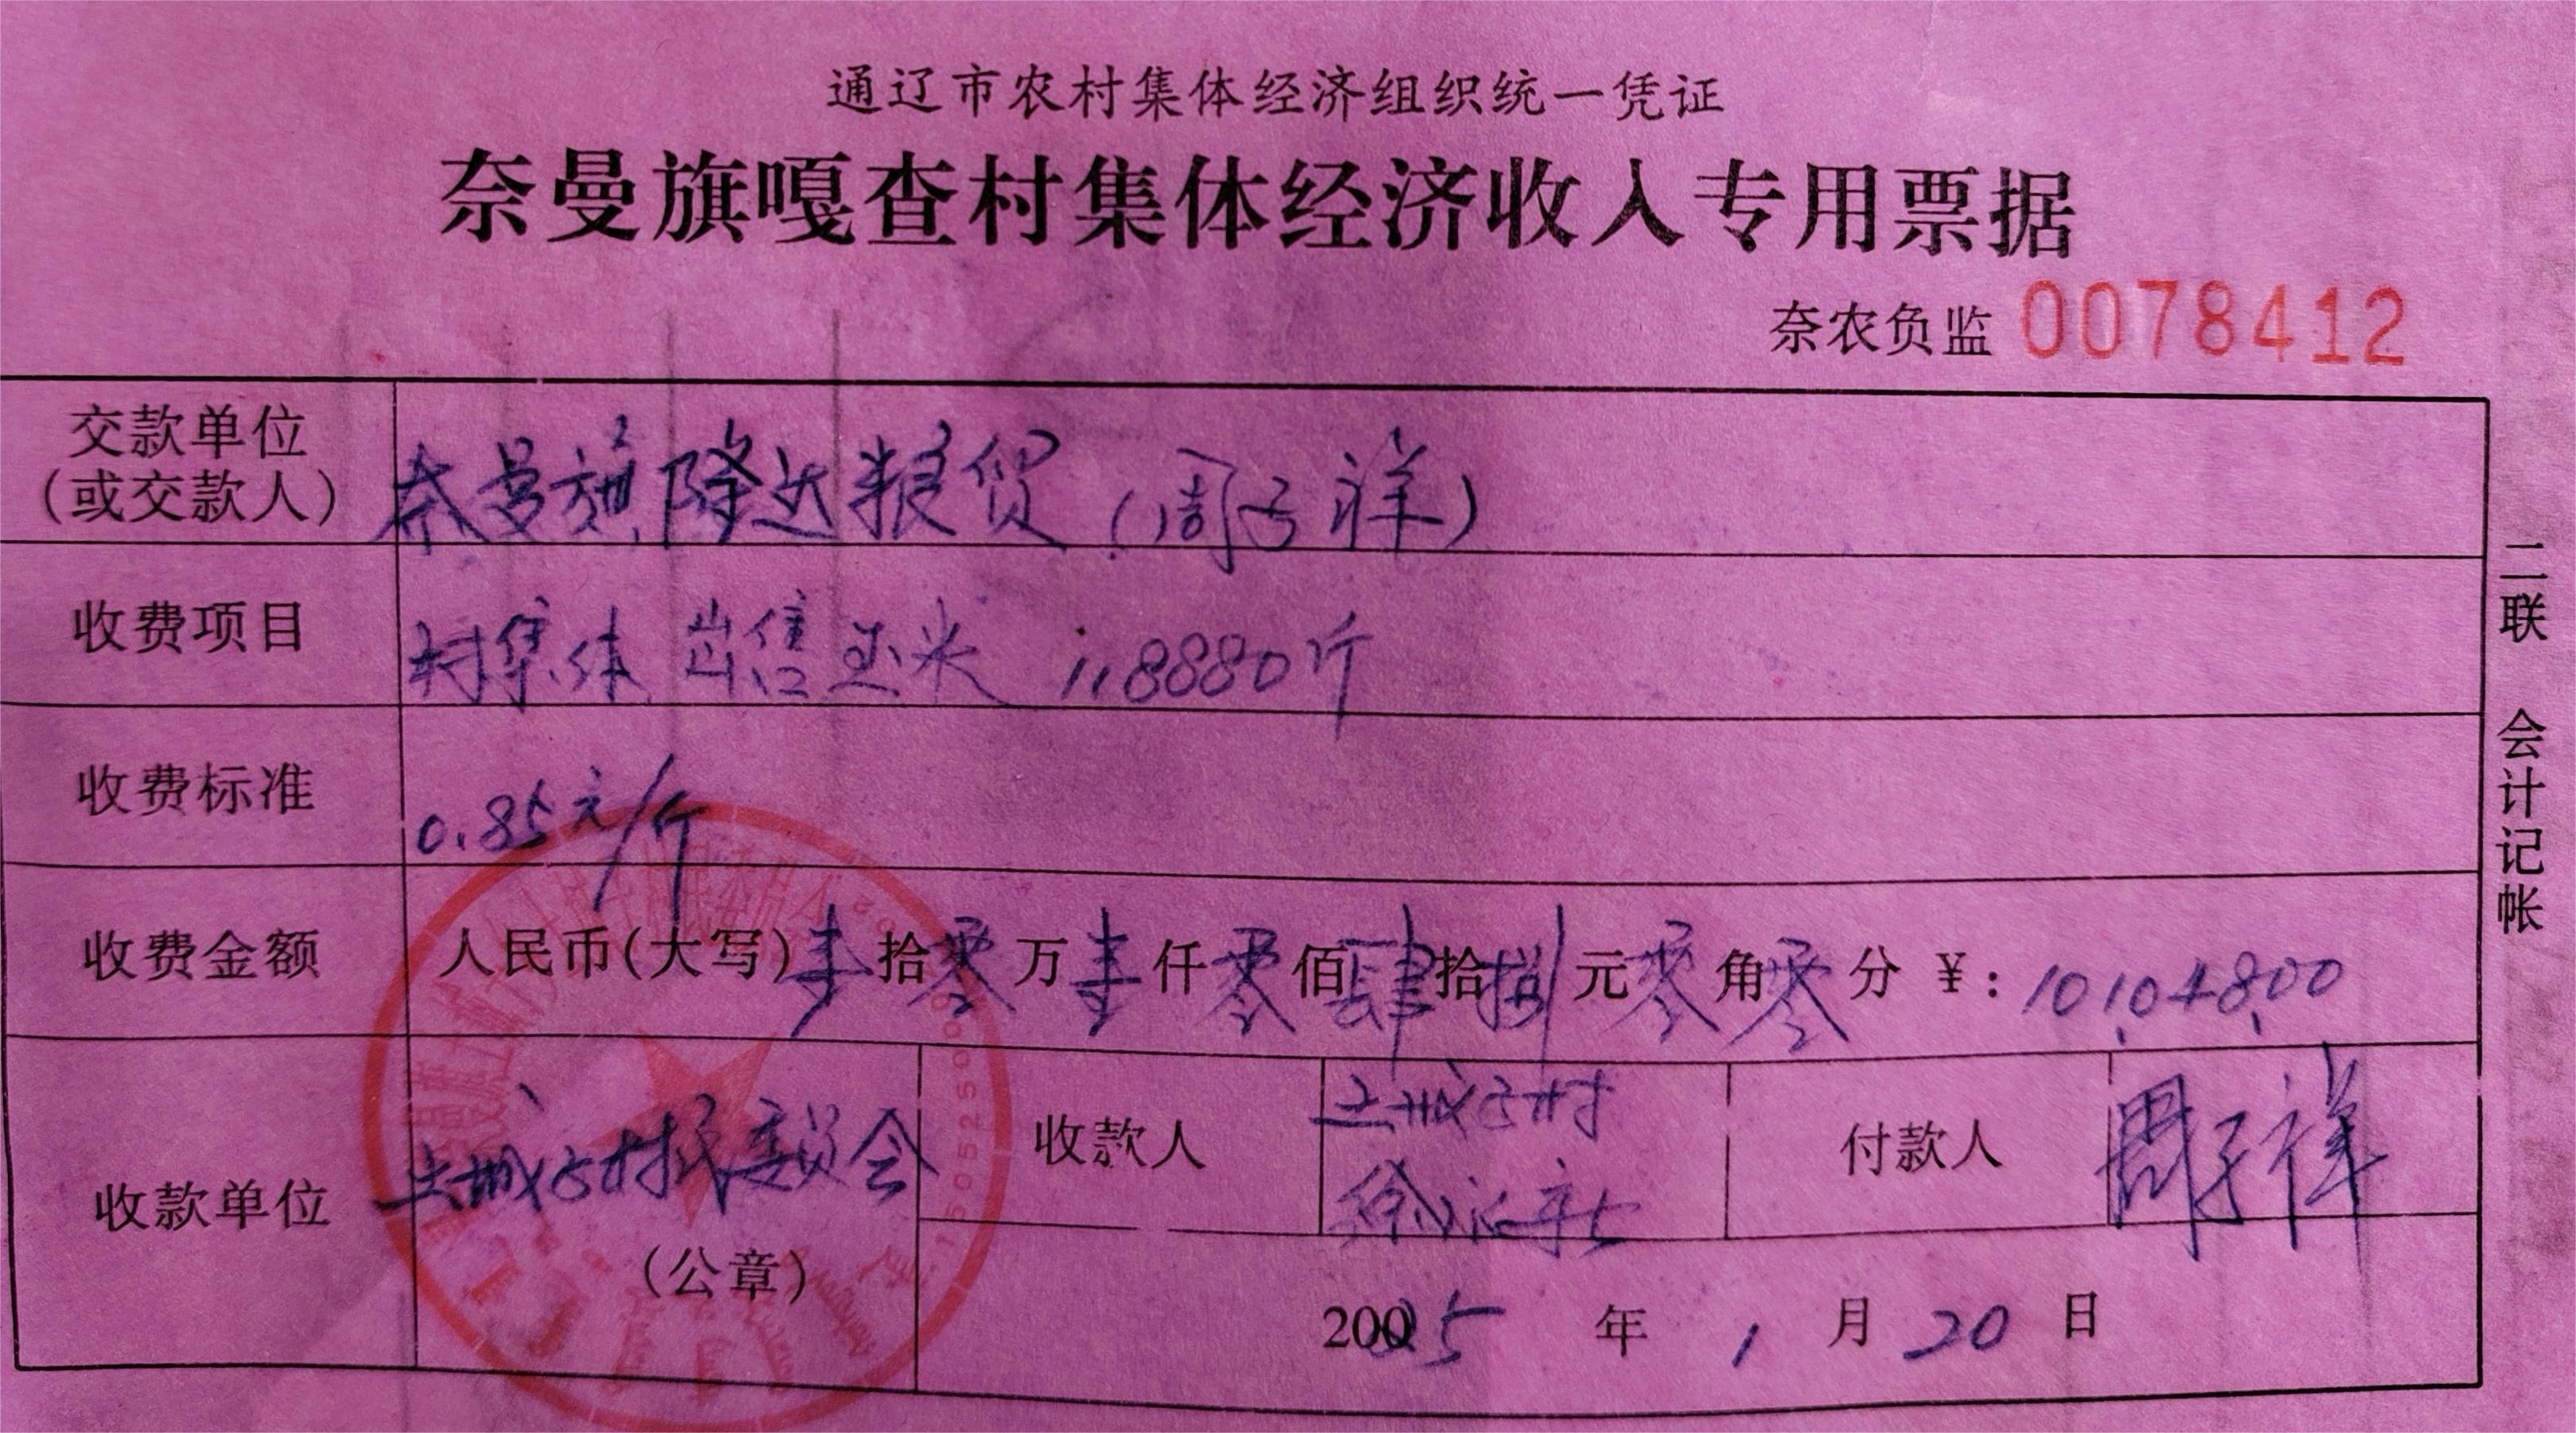 通辽市农村集体经济组织统一凭证
奈曼旗嘎查村集体经济收入专用票据
奈农负监 0078412
交款单位(或交款人) 奈曼旗隆达粮贸(周子祥)
收费项目 村集体出售玉米 118880斤
收费标准 0.85元/斤
收费金额 人民币(大写)壹拾零万壹仟零佰肆拾捌元零角零分 ¥:101,048.00
收款单位 土城子村村民委员会
(公章)
收款人 土城子村
付款人 周子祥
2025年1月20日
二联 会计记帐